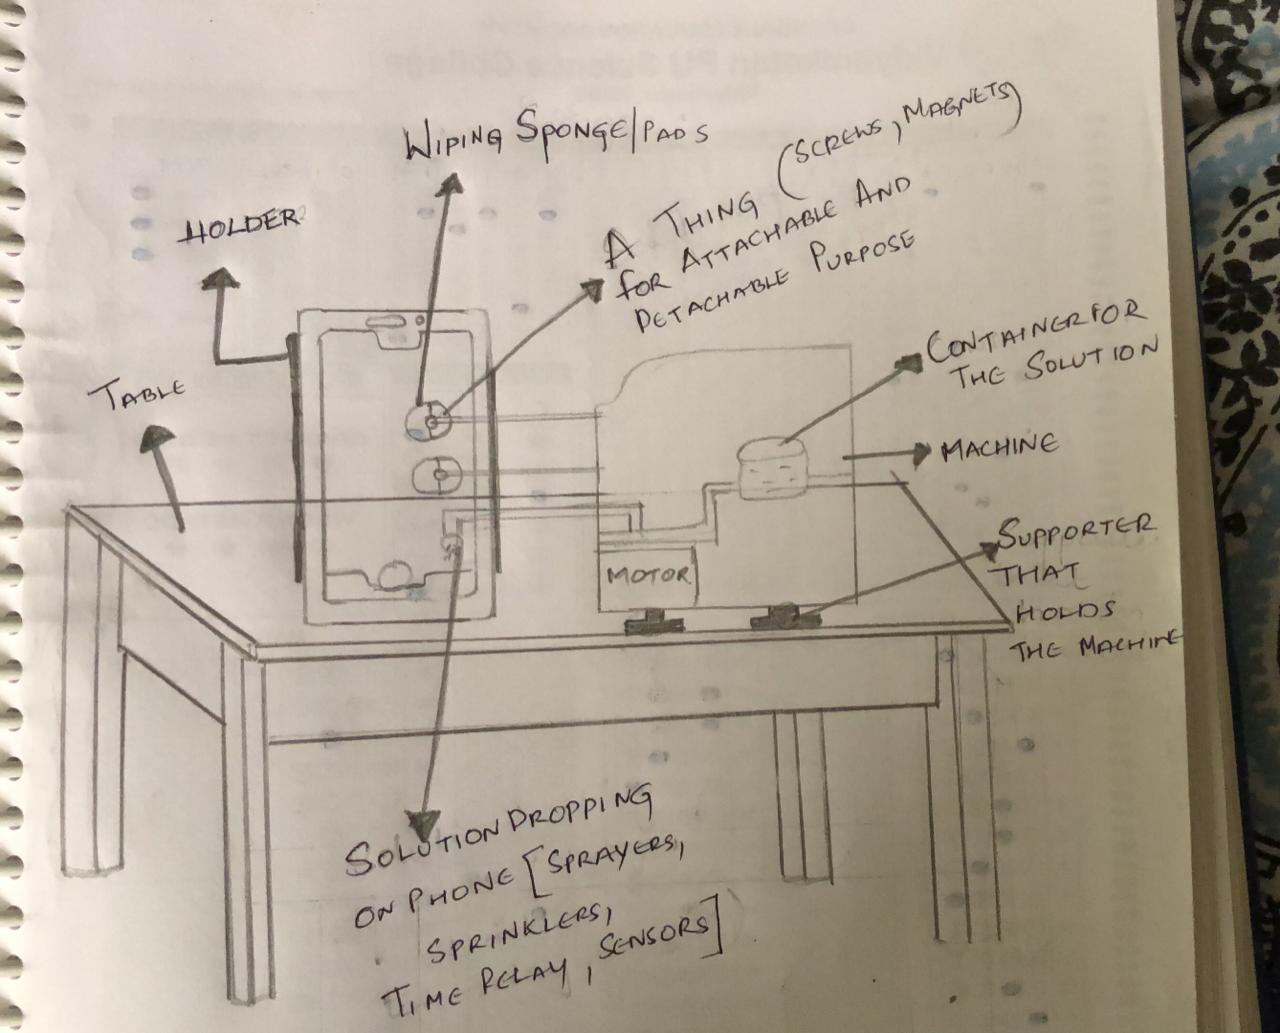 WIPING SPONGE/PADS
A THING (SCREWS, MAGNETS)
FOR ATTACHABLE AND
DETACHABLE PURPOSE
HOLDER
TABLE
CONTAINER FOR
THE SOLUTION
MACHINE
SUPPORTER
THAT
HOLDS
THE MACHINE
MOTOR
SOLUTION DROPPING
ON PHONE [SPRAYERS,
SPRINKLERS,
TIME RELAY, SENSORS]